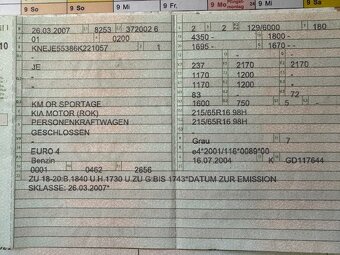 9 So
9 Mi
9 Fr
9 Mo
9 Mi
9 Sa
9 Mo
10
26.03.2007
8253
372002 6
01
0200
KNEJE55386K221057
1
JE
KM OR SPORTAGE
KIA MOTOR (ROK)
PERSONENKRAFTWAGEN
GESCHLOSSEN
-
EURO 4
Benzin
0001
0462
2656
2
2
129/6000
180
4350 -
1800 -
1695 -
1670 -
237
2170
2170
1170
1200
1170
1200
83
72
1600
750
5
215/65R16 98H
215/65R16 98H
Grau
7
e4*2001/116*0089*00
16.07.2004
K
GD117644
ZU 18-20:B.1840 U.H.1730 U.ZU G:BIS 1743*DATUM ZUR EMISSION
SKLASSE: 26.03.2007*